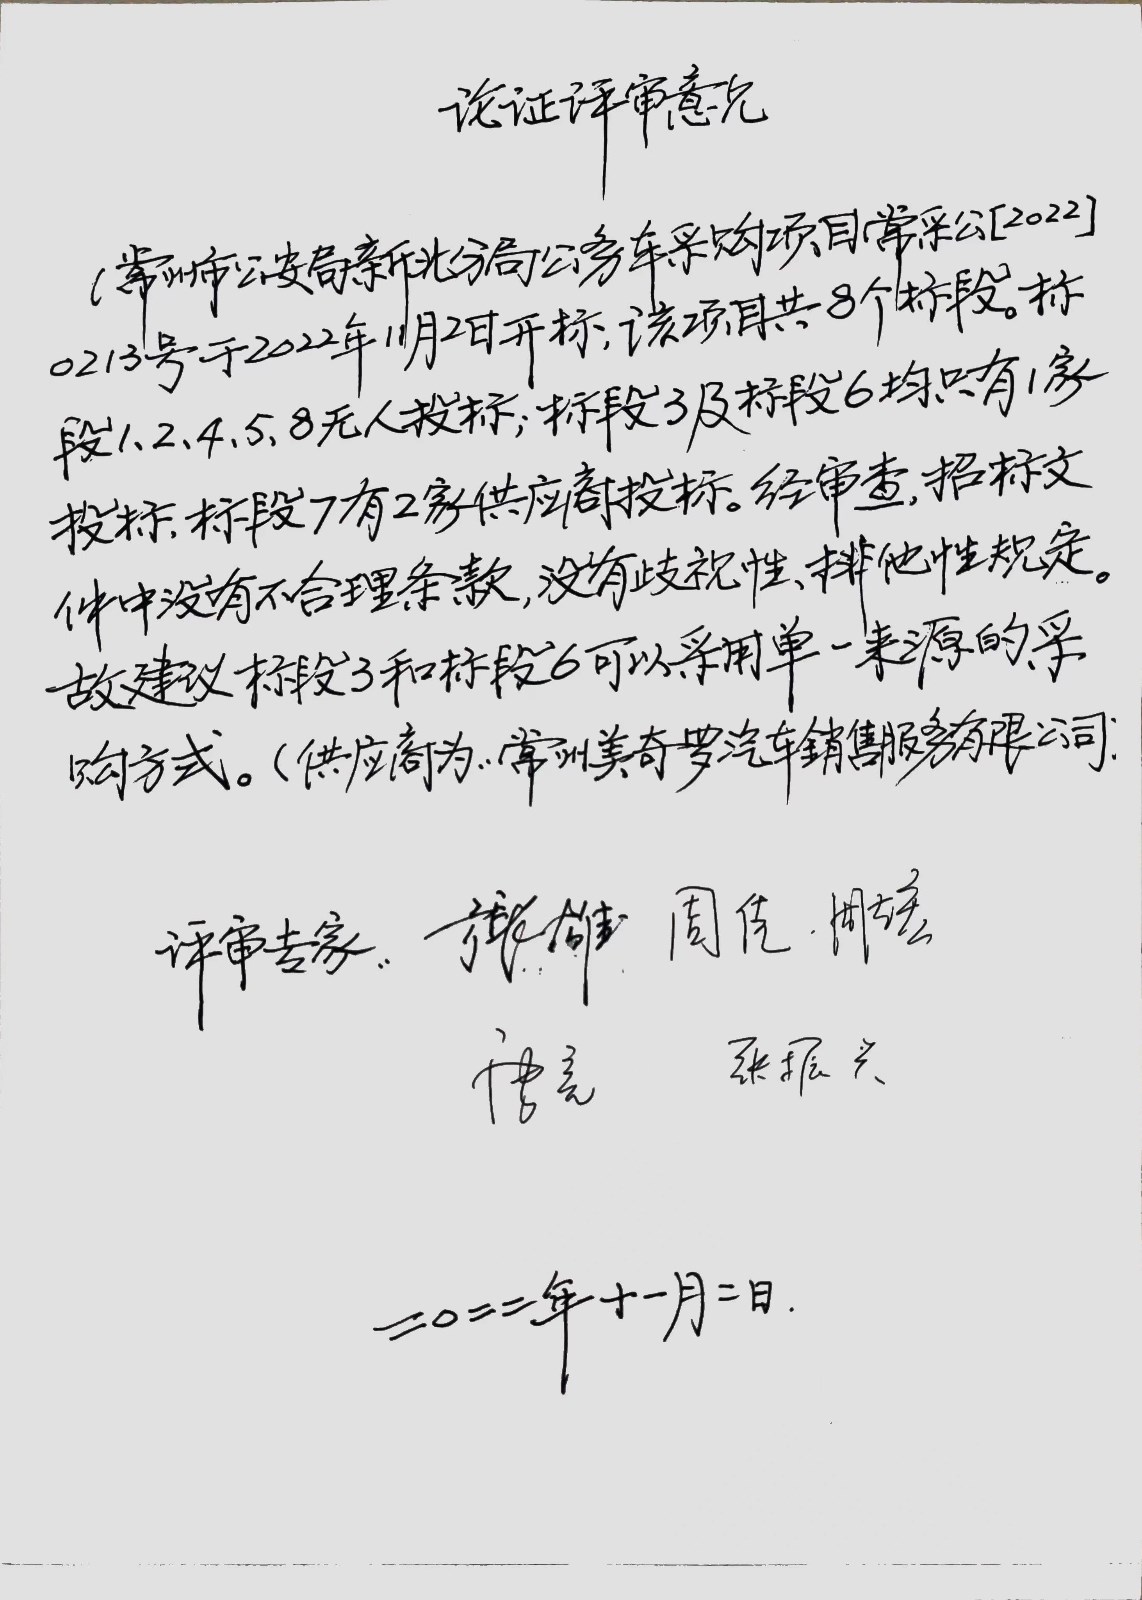 论证评审意见
(常州市公安局新北分局公务车采购项目常采公[2022]
0213号于2022年11月2日开标,该项目共8个标段。标
段1、2、4、5、8无人投标;标段3及标段6均只有1家
投标,标段7有2家供应商投标。经审查,招标文
件中没有不合理条款,没有歧视性、排他性规定。
故建议标段3和标段6可以采用单一来源的采
购方式。(供应商为:常州美奇罗汽车销售服务有限公司)
评审专家: 周
张振兴
二〇二二年十一月二日.